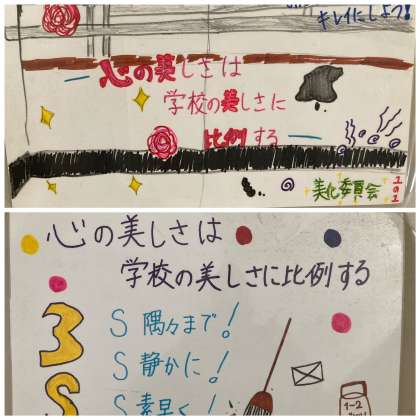 キレイにしよう!
心の美しさは
学校の美しさに
比例する
美化委員会
1の1
心の美しさは
学校の美しさに比例する
3S
S 隅々まで!
S 静かに!
S 素早く!
1-2